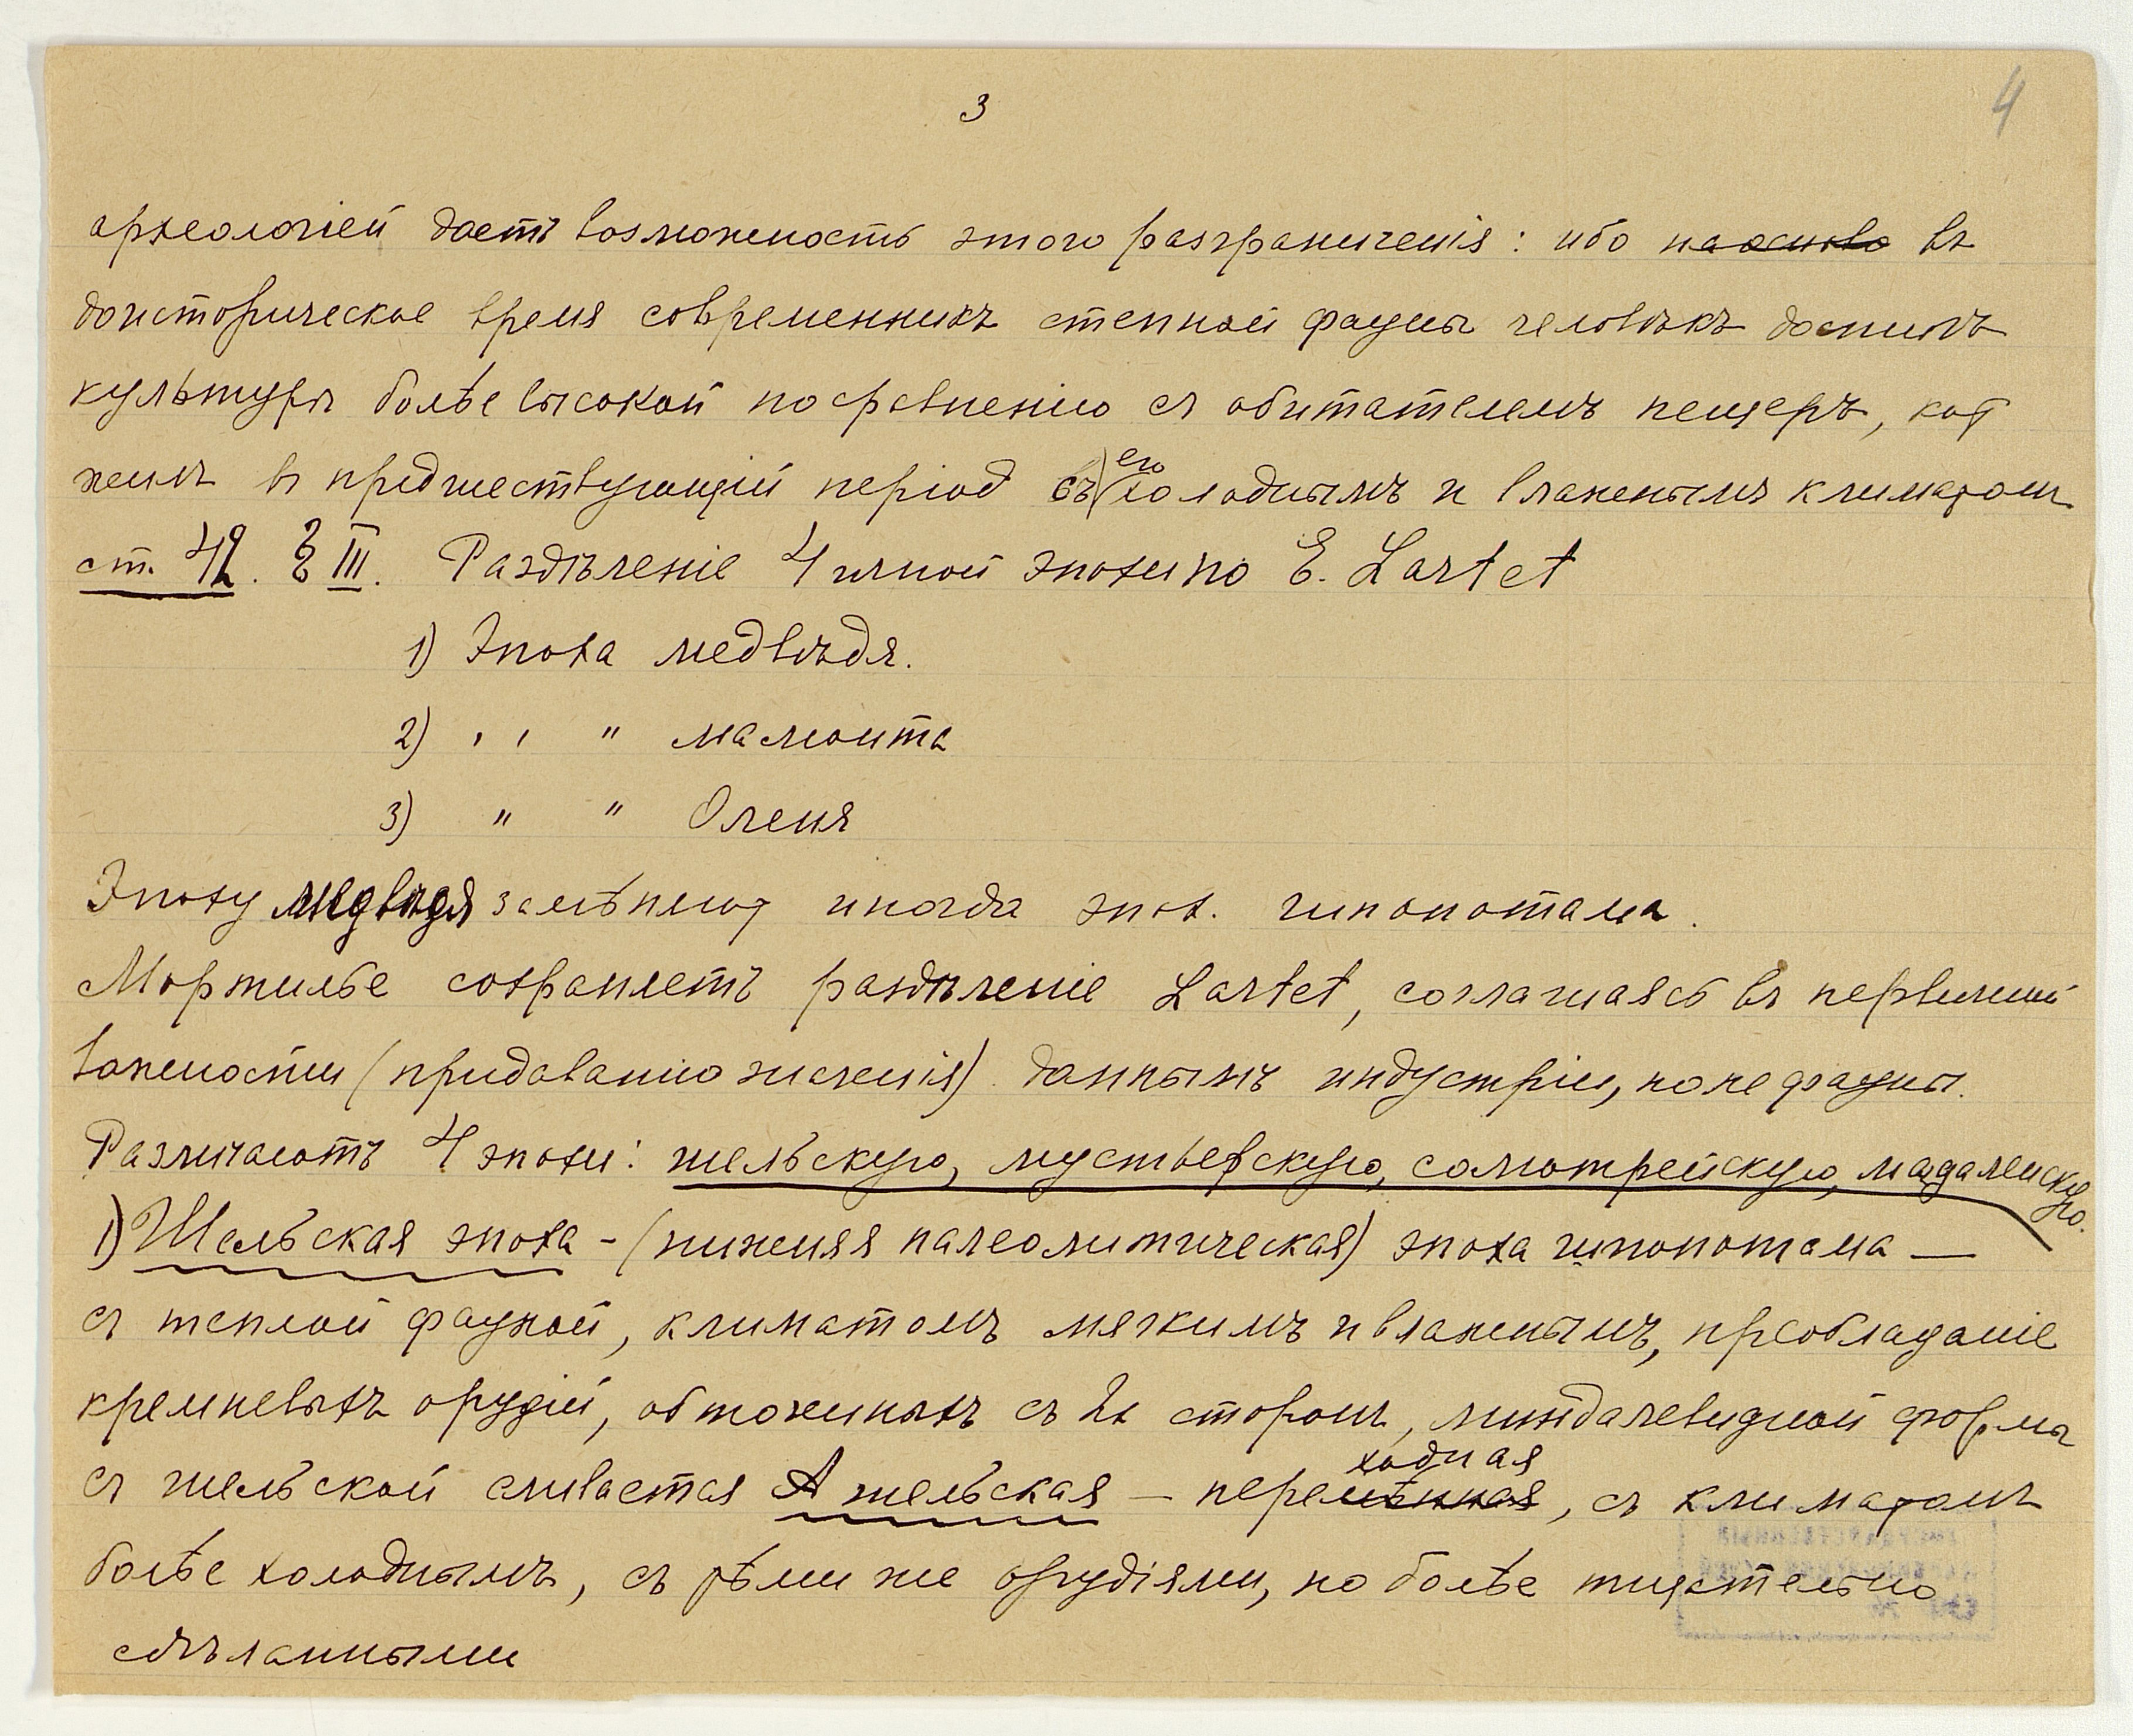 3
4
археологіей даетъ возможность этого разграниченія: ибо въ
доисторическое время современникъ степной фауны человѣкъ достигъ
культуры болѣе высокой по сравненію съ обитателемъ пещеръ, кот
жилъ въ предшествующій періодъ съ его холоднымъ и влажнымъ климатомъ
ст. 42. § III. Раздѣленіе 4ичной эпохи по E. Lartet
1) Эпоха медвѣдя.
2) " " мамонта
3) " " Оленя
Эпоху медвѣдя замѣняют иногда эпох. гипопотама.
Мортилье сохраняетъ раздѣленіе Lartet, соглашаясь въ первичной
важности (придаванію значенія) даннымъ индустріи, но не фауны.
Различаютъ 4 эпохи: шельскую, мустьерскую, солютрейскую, мадаленскую.
1) Шельская эпоха - (нижняя палеолитическая) эпоха гипопотама —
съ теплой фауной, климатомъ мягкимъ и влажнымъ, преобладаніе
кремневыхъ орудій, обтоженныхъ съ 2х сторонъ, миндалевидной формы
съ шельской сливается Ашельская — переходная, съ климатомъ
болѣе холоднымъ, съ тѣми же орудіями, но болѣе тщательно
сдѣланными